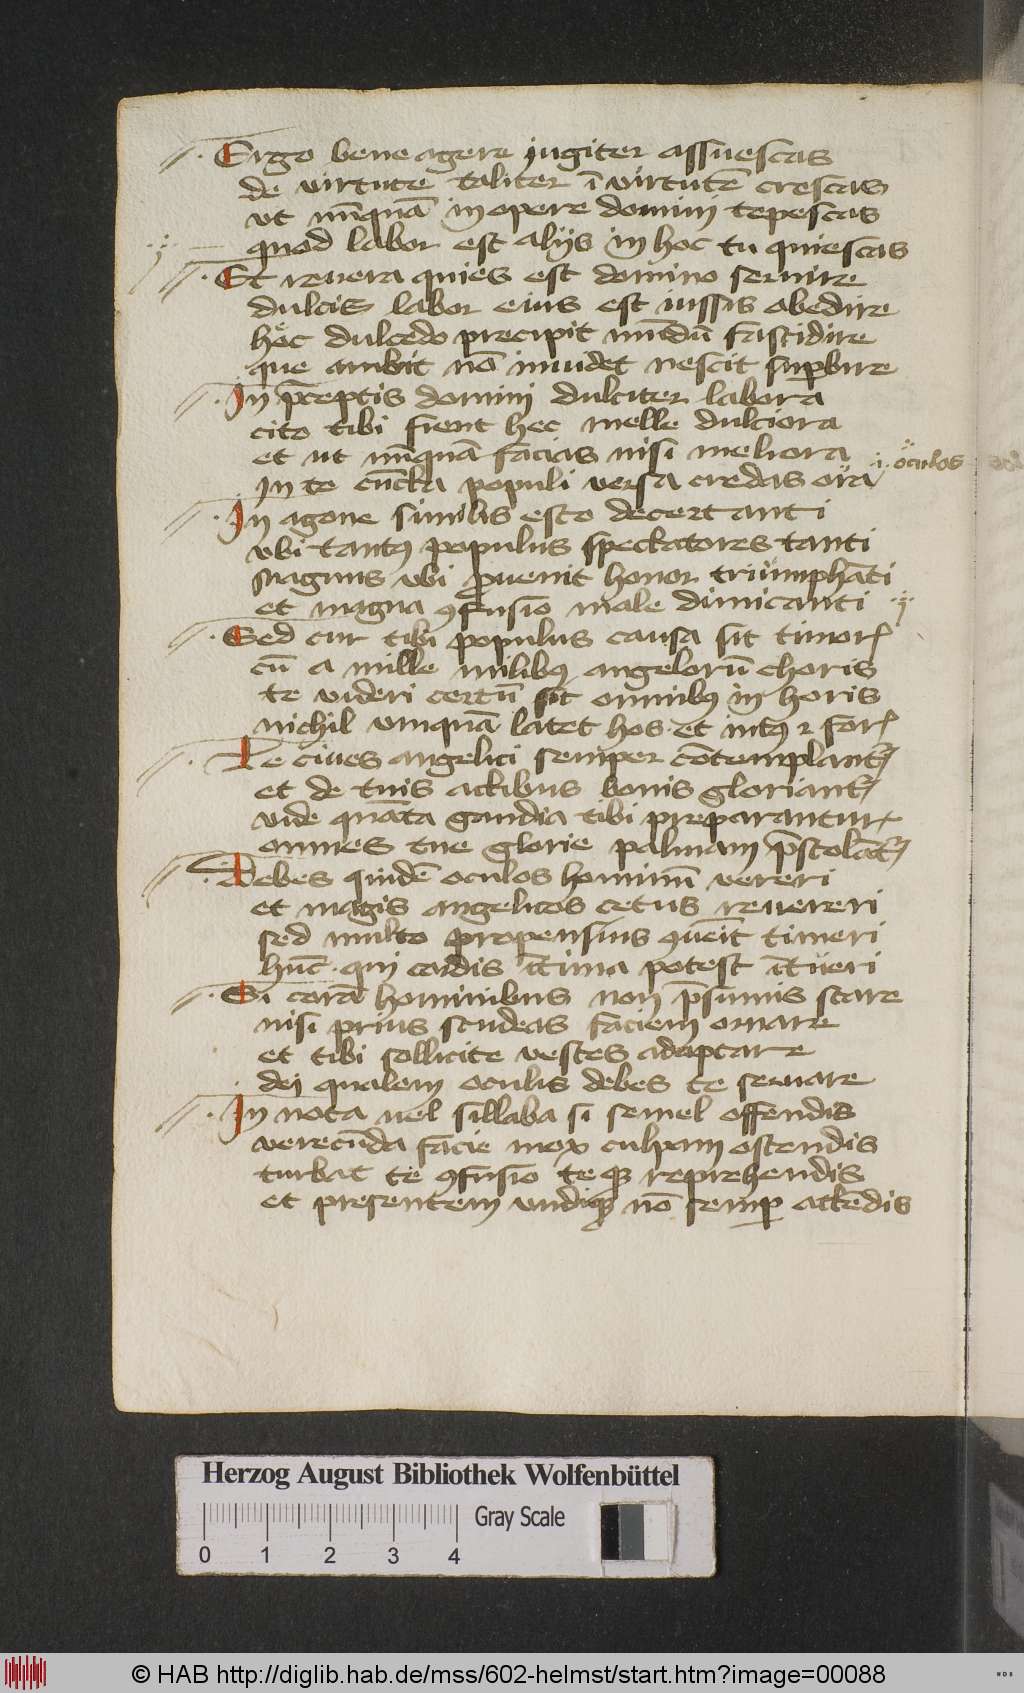 Ergo bene agere jugiter assuescas
de virtute taliter ī virtutē crescas
vt nūquā in opere domini tepescas
quod labor est aliis in hoc tu quiescas
Et reuera quies est domino seruire
dulcis labor eius est iussis obedire
hec dulcedo precipit mūdū fastidire
que ambit nō inuidet nescit supbire
In pceptis domini dulciter labora
cito tibi fient hec melle dulciora
et ut nūquā facias nisi meliora
In te cūcta populi versa credas ora .i. oculos
In agone similis esto decertanti
vbi tantꝰ populus spectatores tanti
magnus vbi puenit honor triūmphāti
et magna ꝯfusio male dimicanti
Sed cur tibi populus causa sit timorꝭ
cū a mille milibꝰ angelorū choris
te videri certū sit omnibꝰ in horis
nichil vmquā latet hos et intꝰ ⁊ forꝭ
Te ciues angelici semper cōtemplantꝭ
et de tuis actibus bonis gloriantꝭ
vide quāta gaudia tibi preparantur
omnes tue glorie palmam pstolātꝭ
Debes quidē oculos hominū vereri
et magis angelicos cetus reuereri
sed multo propensius ꝯueīt timeri
hūc qui cordis ītima potest ītueri
Si corā hominibus non psumis stare
nisi prius studeas faciem ornare
et tibi sollicite vestes adaptare
dei qualem oculis debes te seruare
In nota uel sillaba si semel offendis
verecūda facie mox culpam ostendis
turbat te ꝯfusio teqꝫ reprehendis
et presentem vndiqꝫ nō semp attēdis
Herzog August Bibliothek Wolfenbüttel
Gray Scale
0 1 2 3 4
© HAB http://diglib.hab.de/mss/602-helmst/start.htm?image=00088